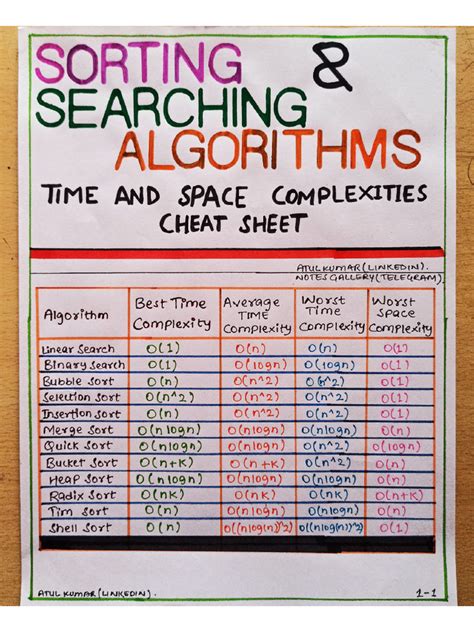 SORTING &
SEARCHING
ALGORITHMS
TIME AND SPACE COMPLEXITIES
CHEAT SHEET
ATUL KUMAR (LINKEDIN).
NOTES GALLERY (TELEGRAM)
Algorithm Best Time Complexity Average TIME Complexity Worst Time Complexity Worst Space Complexity
Linear Search O(1) O(n) O(n) O(1)
Binary Search O(1) O(logn) O(logn) O(1)
Bubble Sort O(n) O(n^2) O(n^2) O(1)
Selection Sort O(n^2) O(n^2) O(n^2) O(1)
Insertion Sort O(n) O(n^2) O(n^2) O(1)
Merge Sort O(nlogn) O(nlogn) O(nlogn) O(n)
Quick Sort O(nlogn) O(nlogn) O(n^2) O(logn)
Bucket Sort O(n+K) O(n+K) O(n^2) O(n)
Heap Sort O(nlogn) O(nlogn) O(nlogn) O(1)
Radix Sort O(nK) O(nK) O(nK) O(n+K)
Tim Sort O(n) O(nlogn) O(nlogn) O(n)
Shell Sort O(n) O((nlog(n))^2) O((nlog(n))^2) O(1)
ATUL KUMAR (LINKEDIN). 1-1